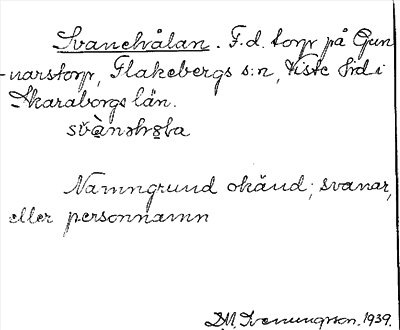 Svanehålan. F.d. torp på Gun-
narstorp, Flakebergs s:n, Viste hd i
Skaraborgs län.
Namngrund okänd; svanar,
eller personnamn
1939.